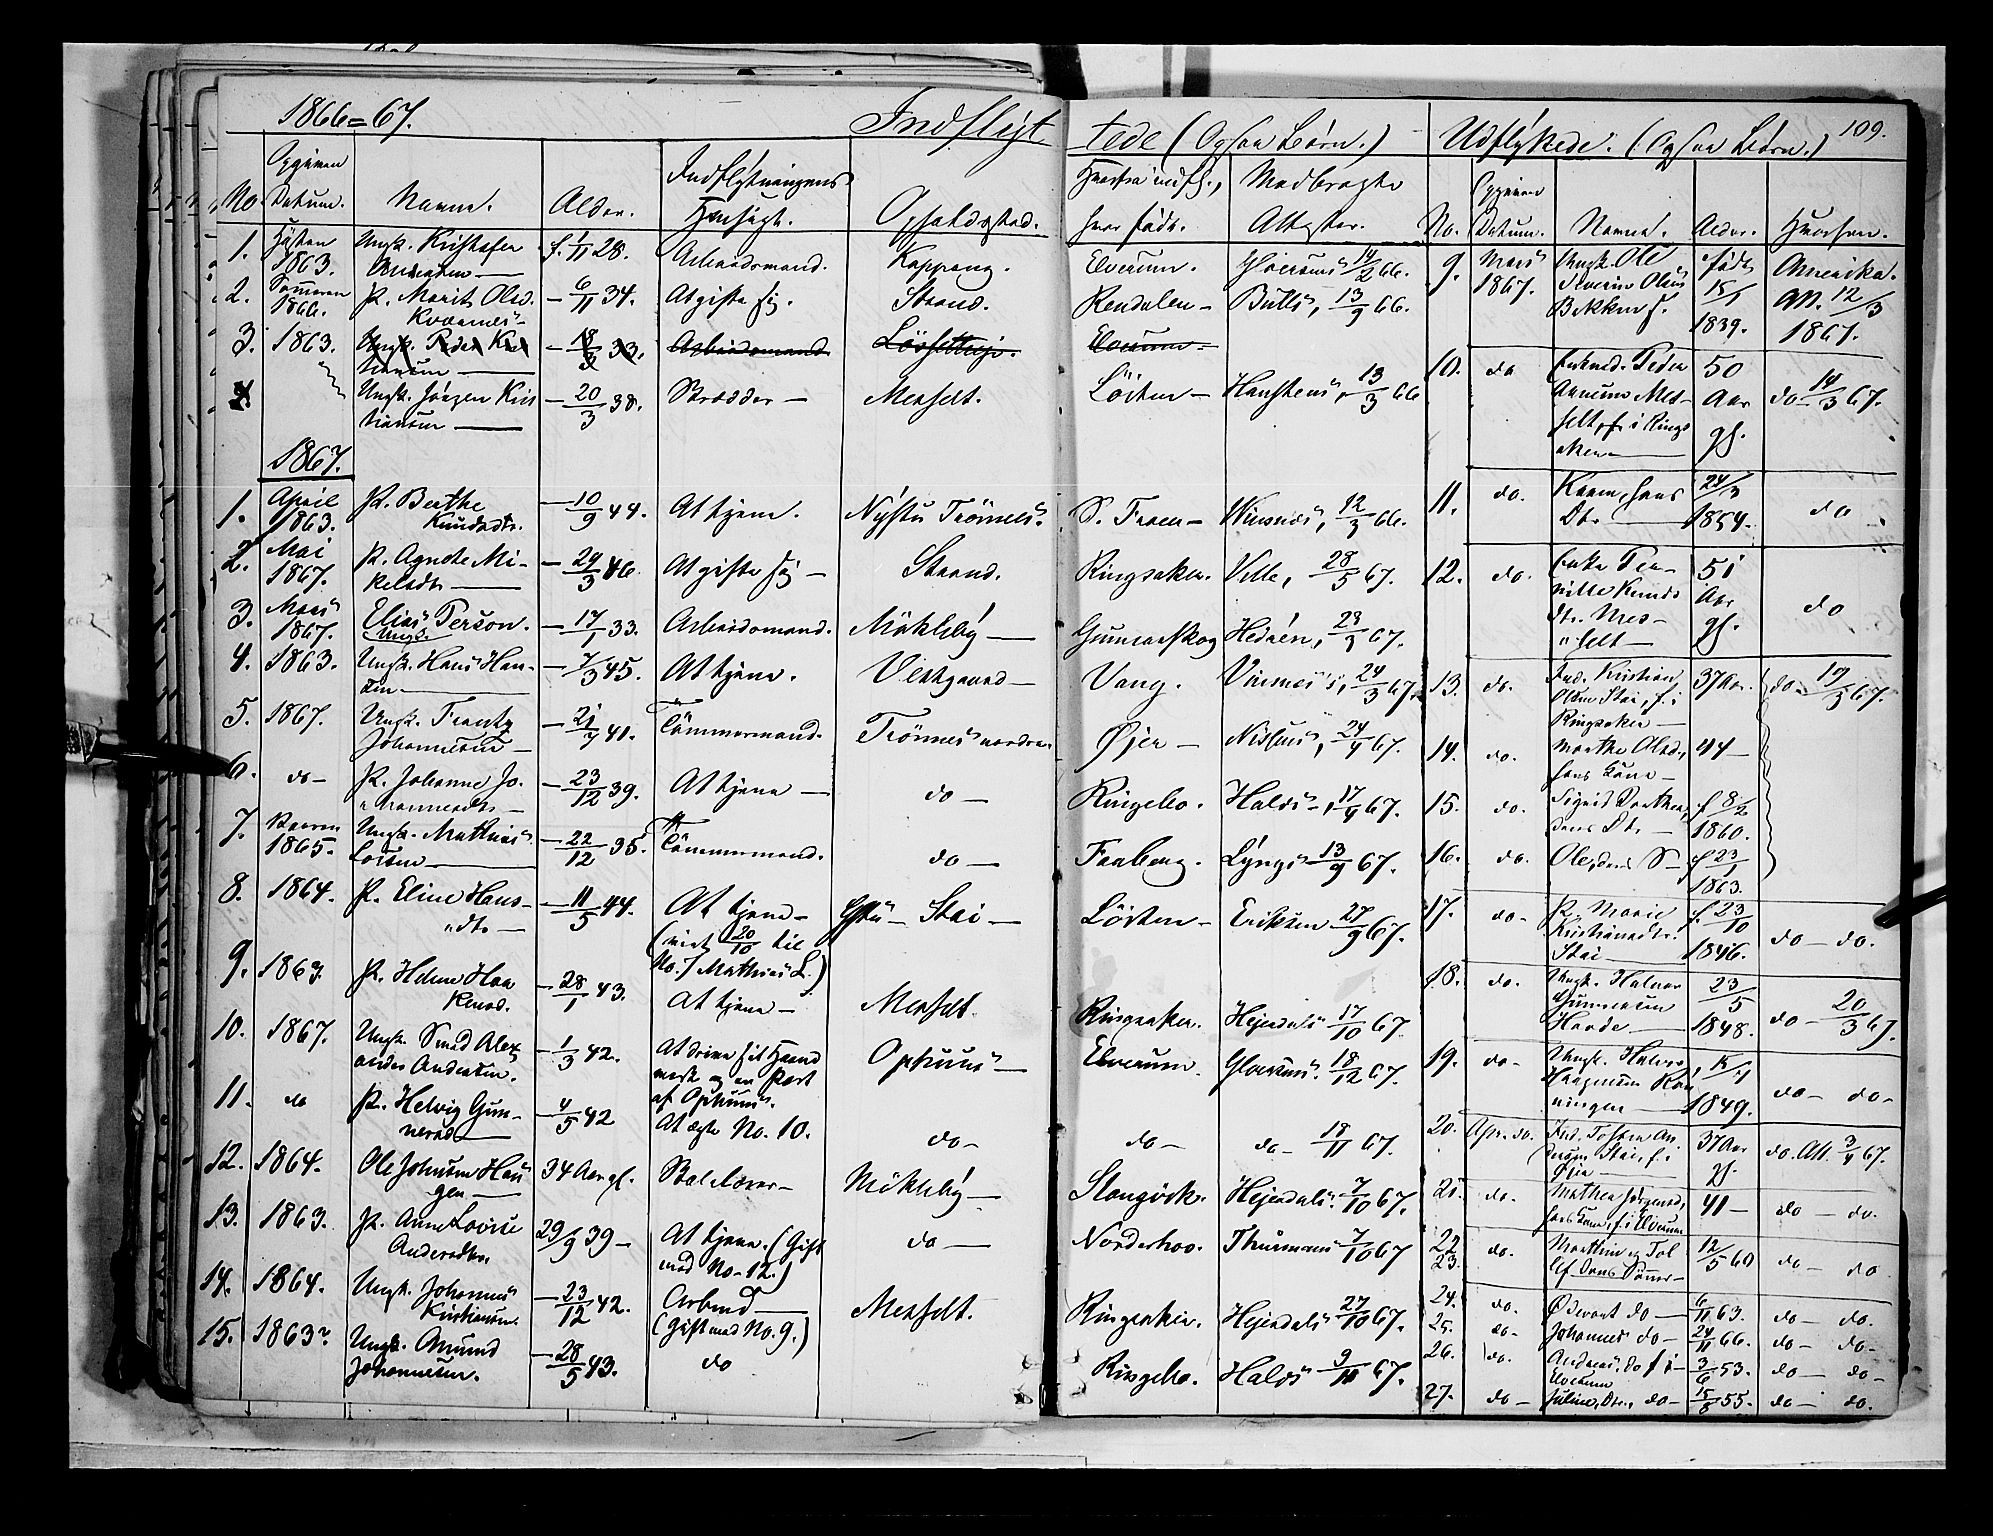 1866=67.
Indflyt
tede (Ogsaa Börn.)
Udflyttede. (Ogsaa Börn.)
109.
No.
Opgiven
Datum.
Navne.
Alder.
Indflytningens
Hensigt.
Opholdssted.
Hvorfra indfl.,
hvor födt.
Medbragte
Attester.
1. Hösten 1863. Ungk. Kristofer Andersen — f. 1/11 28. Arbeidsmand. Koppang. Elverum. 14/2 66.
2. Sommeren 1866. P. Marit Olsd. Kværnes — 6/11 34. At gifte sig. Strand. Rendalen — Bulls, 13/9 66.
3. 1863. Ungk. Peder Kristiansen — 18/3 33. Arbeidsmand Elverum.
4. Ungk. Jörgen Kristiansen — 20/3 38. Skrædder — Messelt. Löiten — Hanstens, 13/3 66
1867.
1. April 1863. P. Berthe Knudsdtr. — 10/9 44. At tjene. Nystu Trönnes. S. Fron — 12/3 66.
2. Mai 1867. P. Agnethe Mikelsdtr — 29/3 46. At gifte sig — Strand. Ringsaker. Velle, 28/5 67.
3. Mars 1867. Elias Person. Ungk. — 17/1 33. Arbeidsmand. Mökleby — Gunnarskog Hedrén, 23/3 67.
4. 1863. Ungk. Hans Hansen — 7/3 45. At tjene. Vestgaard — Vang. 24/3 67.
5. 1867. Ungk. Frantz Johannesen — 21/7 41. Tömmermand. Trönnes nordre. Øjer — Nissens, 24/4 67.
6. do — P. Johanne Johannesdtr — 23/12 39. At tjene — do — Ringebo. Halds, 17/4 67.
7. 1865. Ungk. Mathias Larsen — 22/12 35. Tömmermand. do — Faaberg. Lyngs 13/9 67.
8. 1864. P. Eline Hansdtr — 11/5 44. At tjene — (viet 20/10 til No. 7 Mathias L.) Stai — Löiten — Eriksen 27/9 67.
9. 1863 P. Helene Haakensd. — 28/1 43. At tjene — Messelt. Ringsaker. Hejerdals 17/10 67.
10. 1867. Ungk. Svend Alexander Andersen. — 1/3 42. At drive sit Haandverk og en Part af Ophuus. Ophuus — Elverum. Gloersens. 18/12 67.
11. do P. Helvig Gunnersd. — 4/5 42 At ægte No. 10. do — do — do — 18/11 67.
12. 1864. Ole Johnsen Haugen — 34 Aar gl. Mökleby — Stangvik. Hejerdals 7/10 67.
13. 1863. P. Anne Lovise Andersdtr. 29/9 39 — At tjene. (Gift med No. 12.) do — Norderhov. Thurmans 7/10 67
14. 1864. Ungk. Johannes Kristiansen. — 23/12 42. Arbmd — (Gift med No. 9.) Messelt. Ringsaker. Hejerdals 27/10 67.
15. 1863? Ungk. Amund Johannesen. — 28/5 43. do Ringebo. Halds 9/11 67.
No.
Opgiven
Datum.
Navne.
Alder.
Hvorhen.
9. Mars 1867. Ungk. Ole Severin Olsen Bekken f. födt 15/1 1839. Amerika. Att. 12/3 1867.
10. do Peder Messelt, f. i Ringsaker — 50 Aar gl. do — 14/3 67.
11. do. Karen, hans Dtr — 24/3 1854. do
12. do. Enke Pernille Knudsdtr. Messelt — 51 Aar gl. do
13. do. Ind. Kristian Olsen Stai, f. i Ringsaker — 37 Aar. do — 19/3 67.
14. do. Marthe Olsd., hans Kone — 44 —
15. do. Sigrid Dorthea, deres Dtr — f 8/2 1860.
16. do. Ole, deres S — f 23/1 1863.
17. do — P. Marie Kristiansdtr. Stai — f. 23/10 1846. do — do.
18. do. Ungk. Halvor Gunnersen Haarde — 23/5 1848. do — 20/3 67.
19. do — Ungk. Halvor 1849. do — do —
20. Apr. do. Ind. Torsten Andersen Stai, f. i Øjer — 37 Aar gl. do. Att. 3/4 67.
21. do. Mathea Jörgensd, hans Kone, f. i Elverum 41 — do — do.
22. 23. do. Marthin og Tollef deres Sönner — 12/5 60 do — do
24. do. Edevart do — 6/11 63. do — do.
25. do — Johannes do — 24/11 66. do — do —
26. do. Andreas, do f. i Elverum — 3/6 53. do — do —
27. do — Juline, Dtr., do — 15/8 55. do — do.